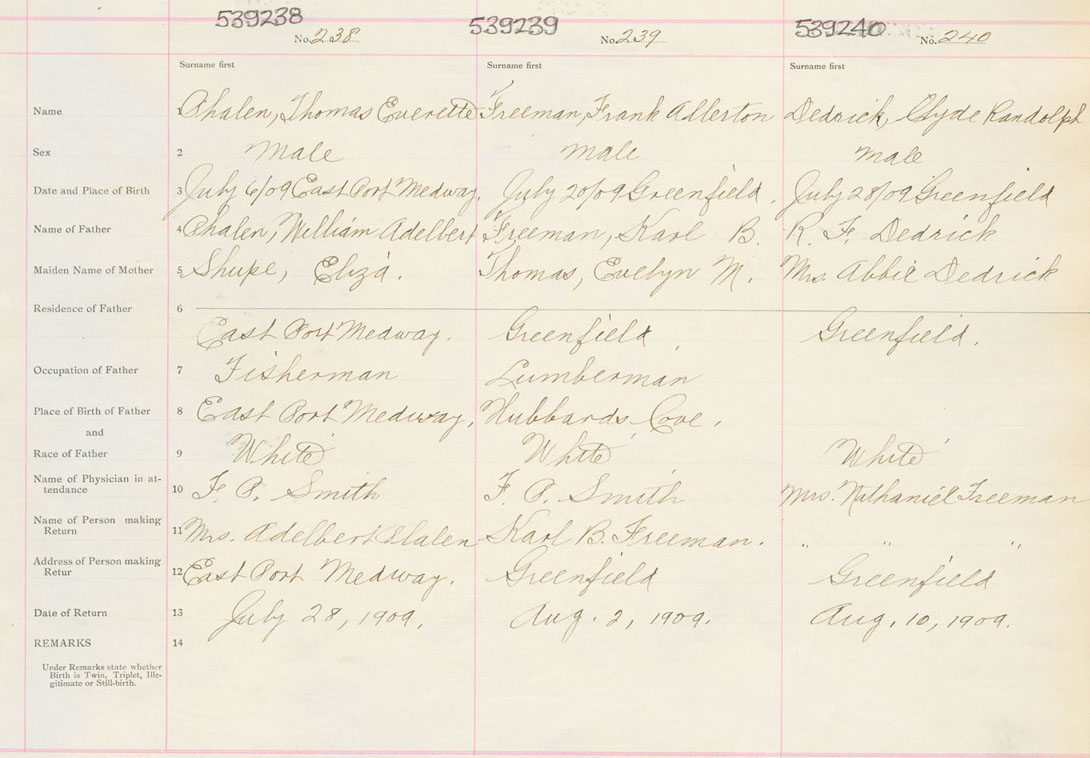 539238 539239 539240
No. 238 No. 239 No. 240
Surname first Surname first Surname first
Name 1 Phalen, Thomas Everette Freeman, Frank Allerton Dedrick, Clyde Randolph
Sex 2 Male Male Male
Date and Place of Birth 3 July 6/09 East Port Medway. July 20/09 Greenfield. July 28/09 Greenfield
Name of Father 4 Phalen, William Adelbert Freeman, Karl B. R. F. Dedrick
Maiden Name of Mother 5 Shupe, Eliza. Thomas, Evelyn M. Mrs. Abbie Dedrick
Residence of Father 6
East Port Medway. Greenfield. Greenfield.
Occupation of Father 7 Fisherman Lumberman
Place of Birth of Father 8 East Port Medway, Hubbards Cove.
and
Race of Father 9 White White White
Name of Physician in at-
tendance 10 F. P. Smith F. P. Smith Mrs. Nathaniel Freeman
Name of Person making
Return 11 Mrs. Adelbert Karl B. Freeman. " " "
Address of Person making
Retur 12 East Port Medway. Greenfield Greenfield
Date of Return 13 July 28, 1909. Aug. 2, 1909. Aug. 10, 1909.
REMARKS 14
Under Remarks state whether
Birth is Twin, Triplet, Ille-
gitimate or Still-birth.